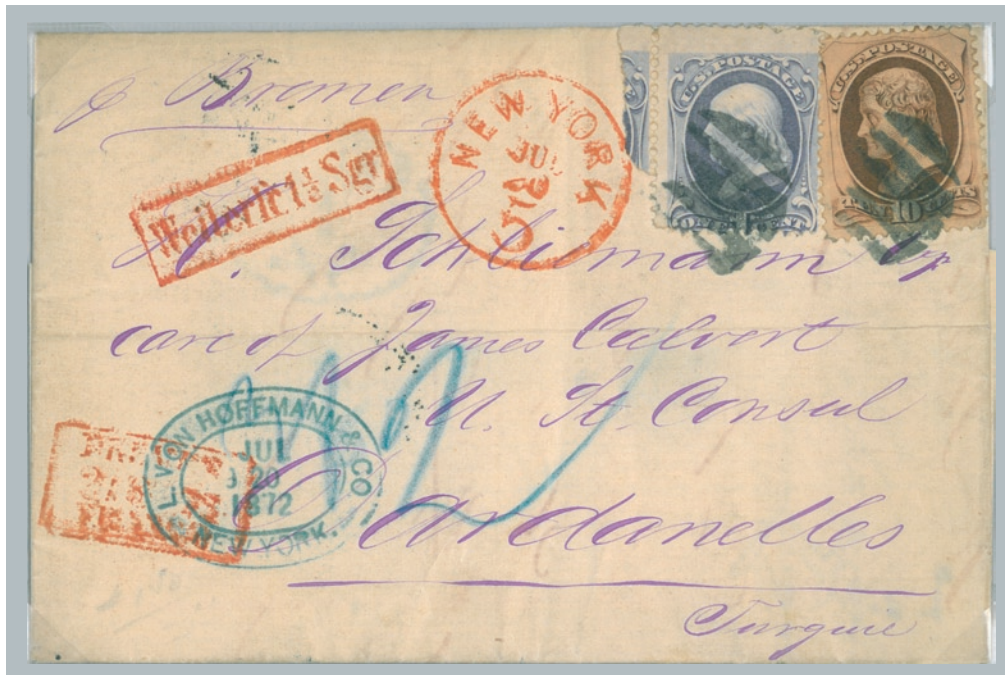 p Bremen
Weiterfr. 1½ Sgr
NEW YORK
JUL
U.S. POSTAGE
ONE CENT
U.S. POSTAGE
TEN 10 CENTS
H. Schliemann
care of James Calvert
U. St. Consul
Dardanelles
Turquie
L. VON HOFFMANN & CO
JUL
20
1872
NEW YORK.